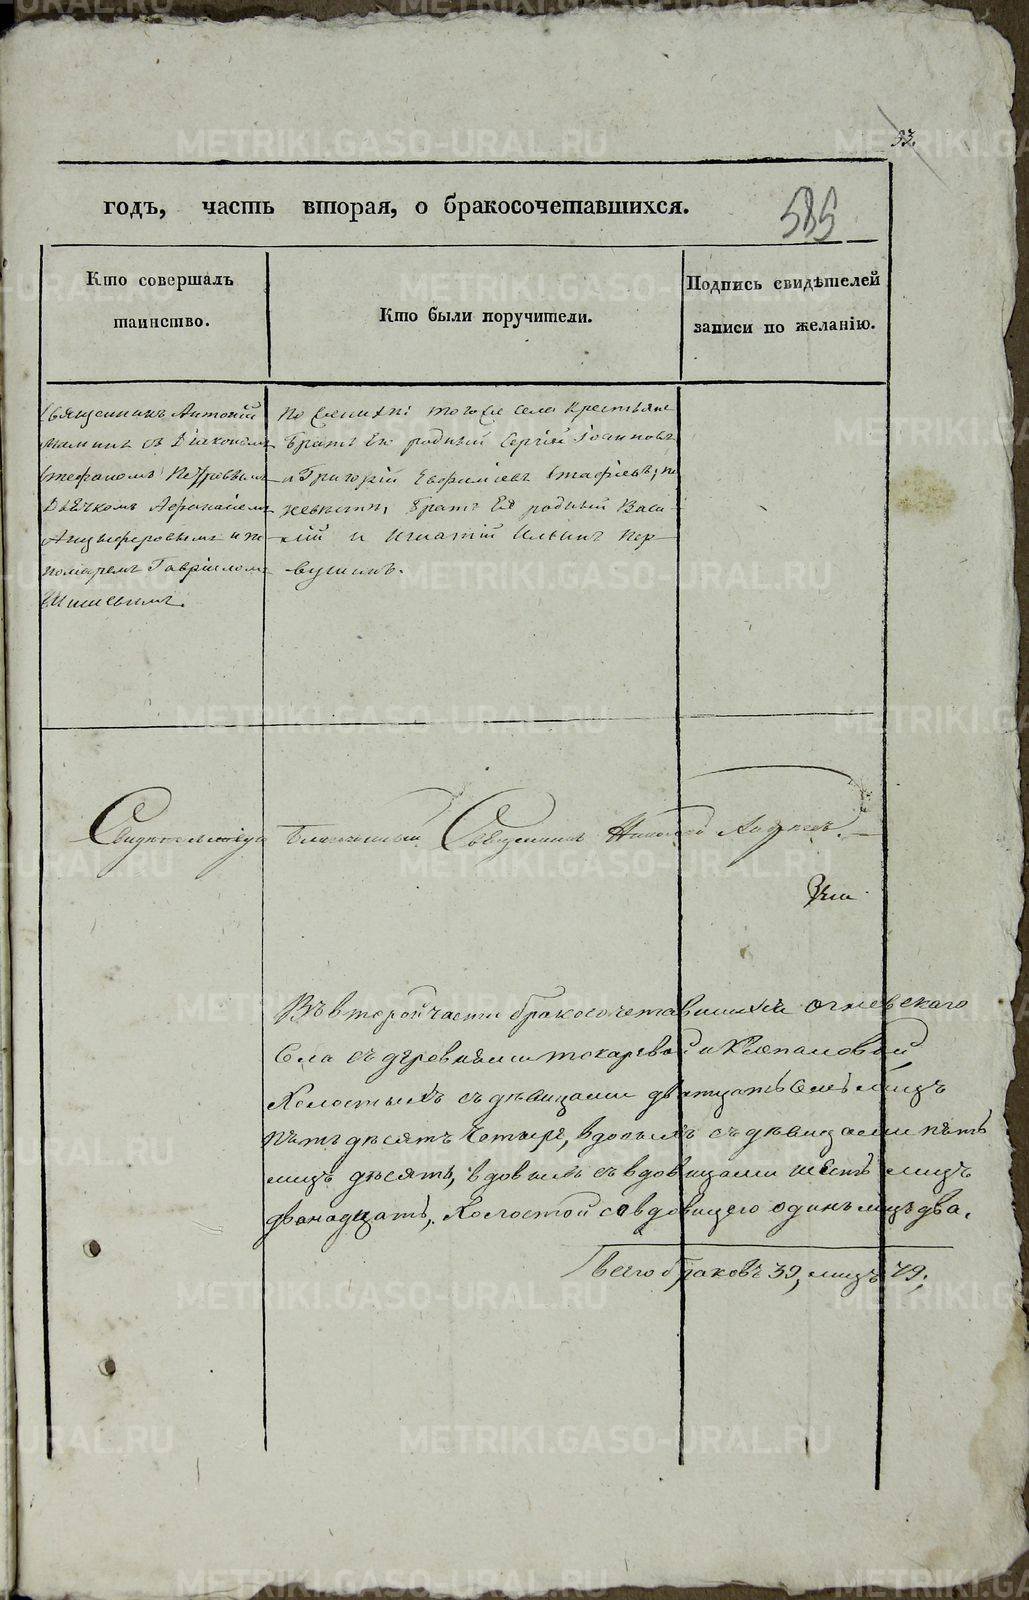 33.
годъ, часть вторая, о бракосочетавшихся.
585
Кто совершалъ
таинство.
Кто были поручители.
Подпись свидѣтелей
записи по желанію.
Священникъ Антоній
съ Діакономъ
Стефаномъ Петровымъ
Дьячкомъ Афанасіемъ
Анцыферовымъ и по
номаремъ Гавріиломъ
По женихѣ тогоже села крестьяне
братъ Его родный Сергій Іоанновъ
и Григорій Евфиміевъ по
невѣстѣ, братъ Ея родный Васи
лій и Игнатій Ильинъ Пер
вушинъ.
Свидѣтельствую Благочинный Священникъ Николай
Въ второй части бракосочетавшихся Огневскаго
Села съ деревнями Токаревой и Клепаловой,
Холостыхъ съ дѣвицами двадцать семь лицъ
пятьдесятъ четыре, вдовыхъ съ дѣвицами пять
лицъ десять, вдовыхъ съ вдовицами шесть лицъ
двѣнадцать, Холостой со вдовицею одинъ лицъ два.
Всего браковъ 39, лицъ 79;
METRIKI.GASO-URAL.RU